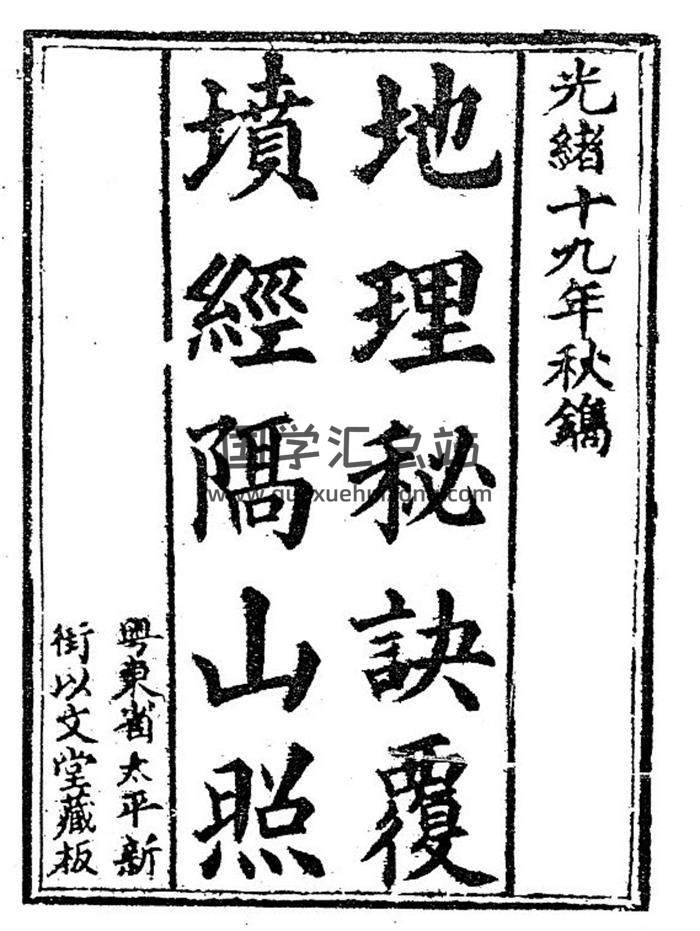 光緒十九年秋鐫
地理秘訣覆
墳經隔山照
粤東省太平新
街以文堂藏板
国学汇总站
www.guoxuehuizong.com